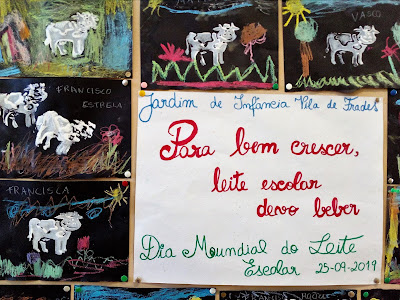 VASCO
FRANCISCO
ESTRELA
FRANCISCA
Jardim de Infância Vila de Frades
Para bem crescer,
leite escolar
devo beber
Dia Moundial do Leite
Escolar 25-09-2019